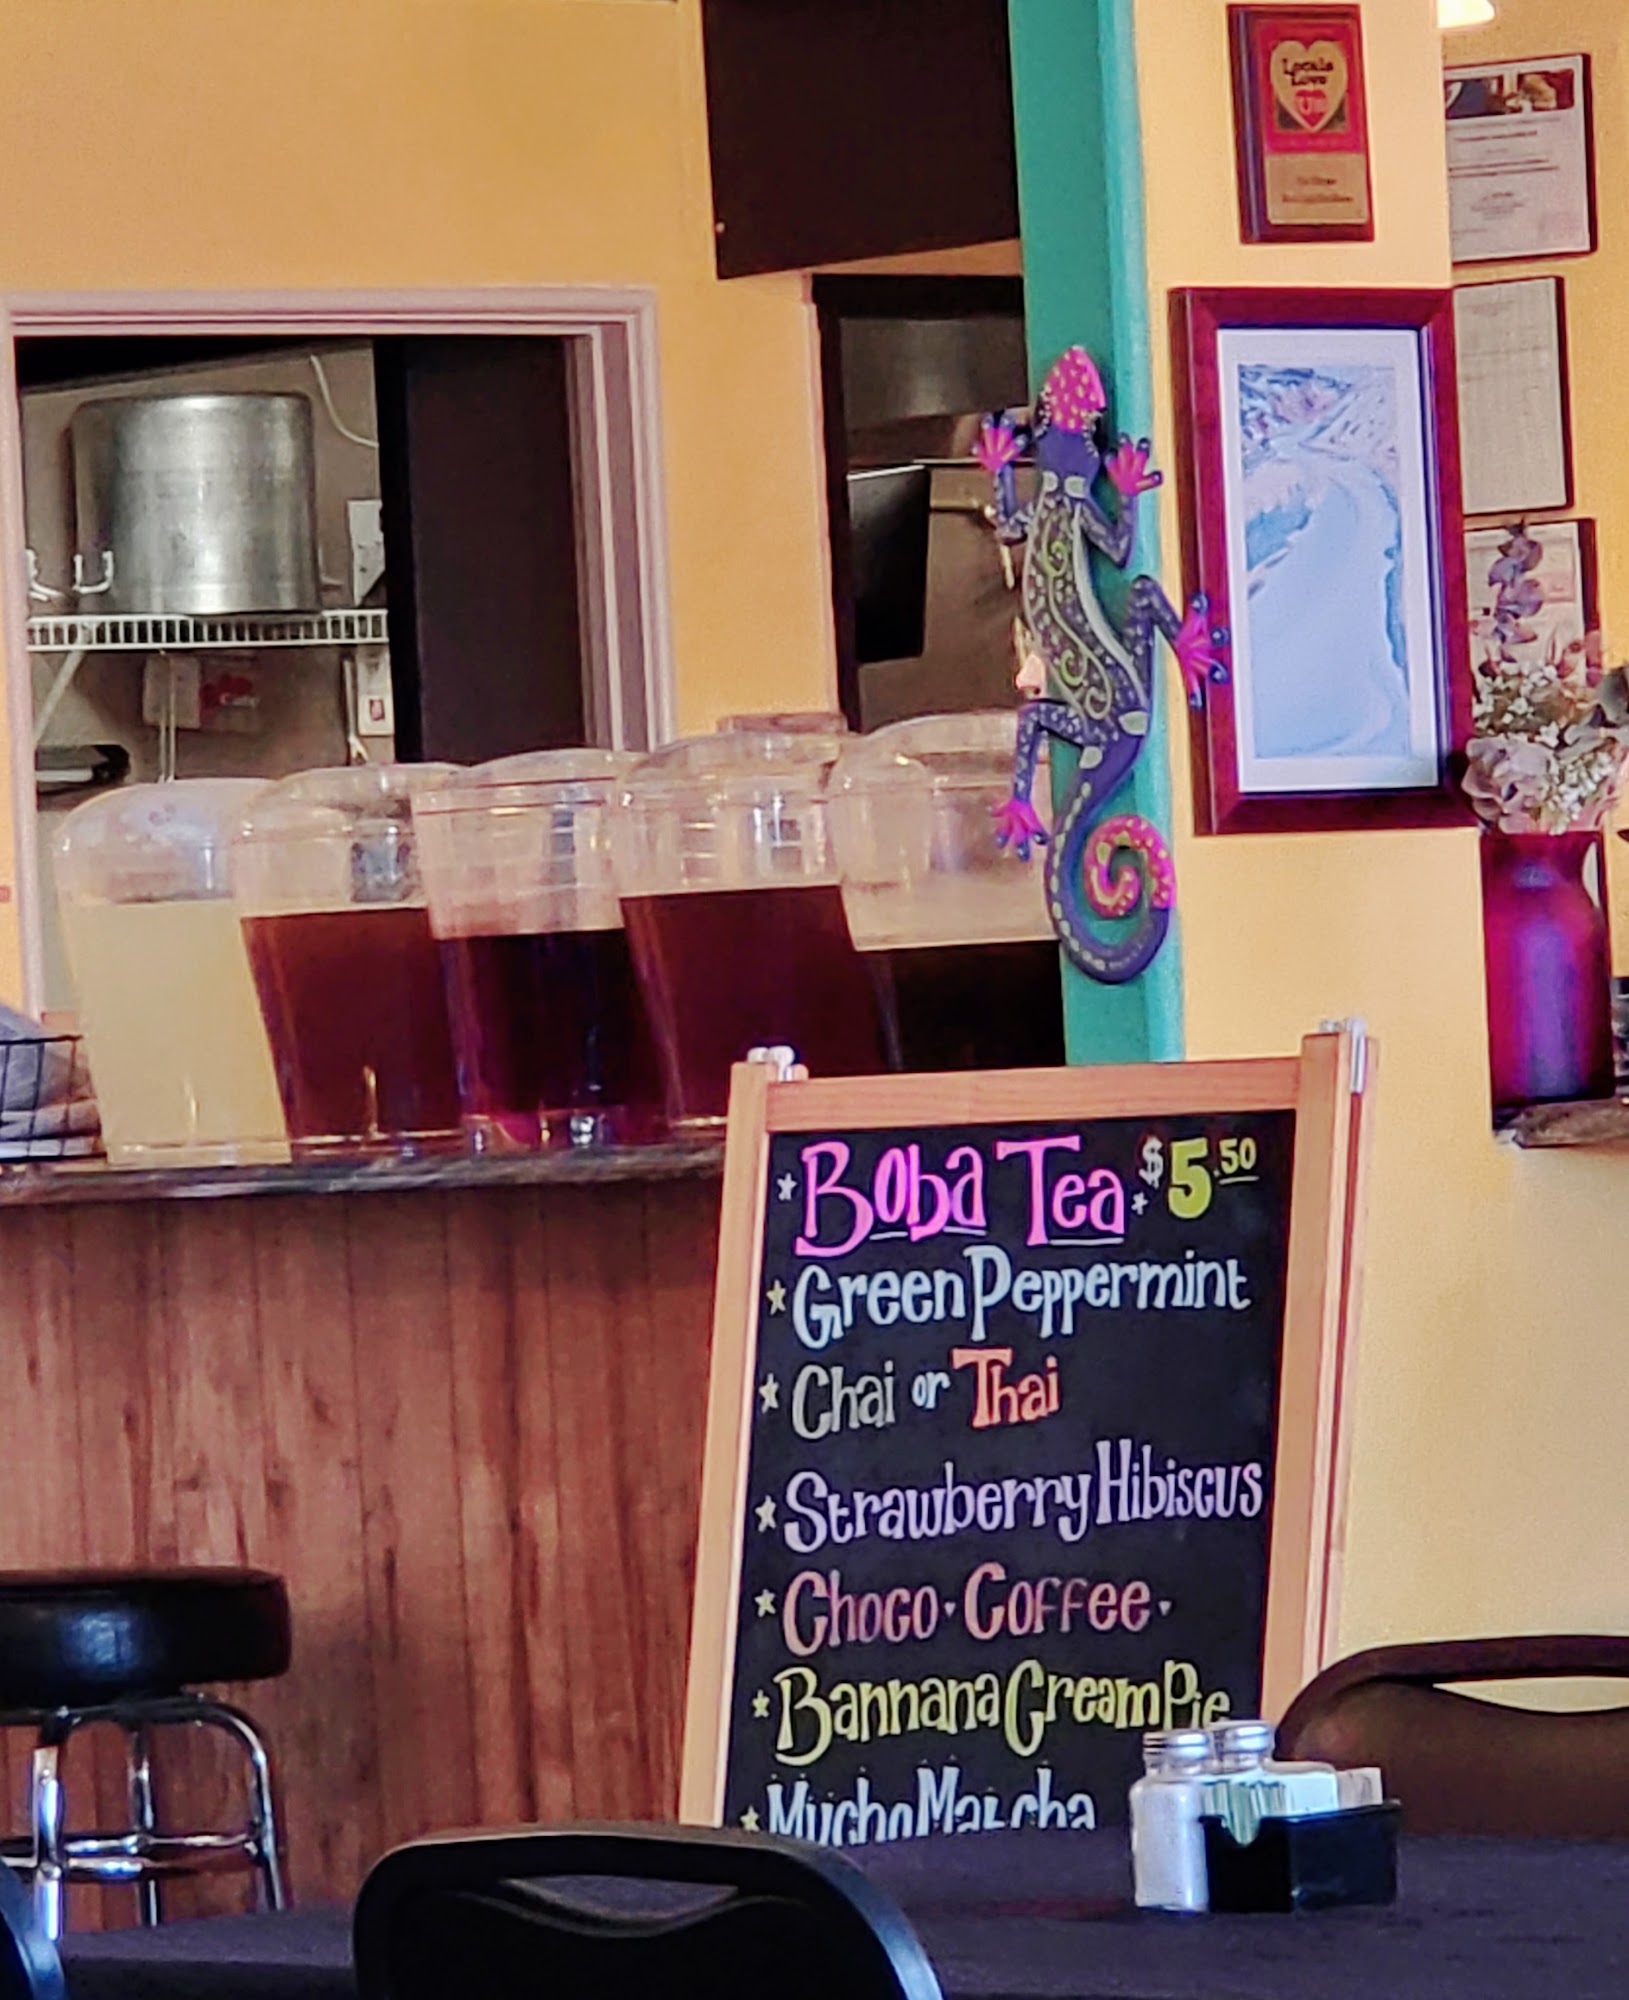 Locals
Love
Us
Boba Tea $5.50
Green Peppermint
Chai or Thai
Strawberry Hibiscus
Choco · Coffee ·
Bannana Cream Pie
Mucho Matcha